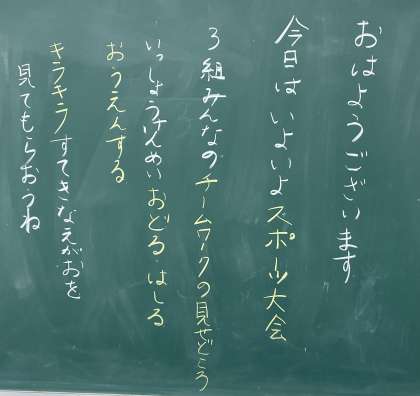 おはようございます
今日はいよいよスポーツ大会
3組みんなのチームワークの見せどころ
いっしょうけんめいおどる はしる
おうえんする
キラキラすてきなえがおを
見てもらおうね